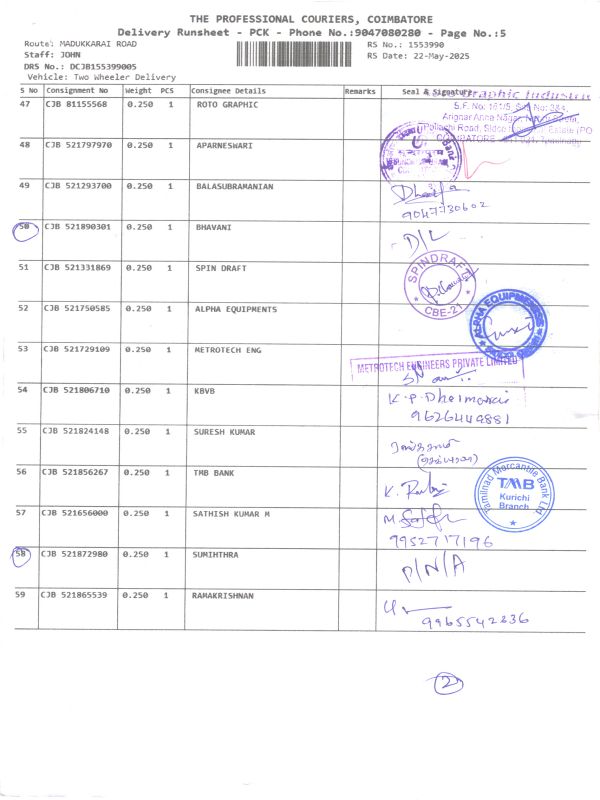 THE PROFESSIONAL COURIERS, COIMBATORE
Delivery Runsheet - PCK - Phone No.:9047080280 - Page No.:5
Route: MADUKKARAI ROAD
RS No.: 1553990
Staff: JOHN
RS Date: 22-May-2025
DRS No.: DCJB155399005
Vehicle: Two Wheeler Delivery
S No Consignment No Weight PCS Consignee Details Remarks Seal & Signature
47 CJB 81155568 0.250 1 ROTO GRAPHIC
48 CJB 521797970 0.250 1 APARNESWARI
49 CJB 521293700 0.250 1 BALASUBRAMANIAN
9047730602
50 CJB 521890301 0.250 1 BHAVANI D/L
51 CJB 521331869 0.250 1 SPIN DRAFT
SPINDRAFT
CBE-21
52 CJB 521750585 0.250 1 ALPHA EQUIPMENTS
53 CJB 521729109 0.250 1 METROTECH ENG
METROTECH ENGINEERS PRIVATE LIMITED
54 CJB 521806710 0.250 1 KBVB
9626444881
55 CJB 521824148 0.250 1 SURESH KUMAR
56 CJB 521856267 0.250 1 TMB BANK
Tamilnad Mercantile Bank Ltd
TMB
Kurichi
Branch
57 CJB 521656000 0.250 1 SATHISH KUMAR M
9952717196
58 CJB 521872980 0.250 1 SUMIHTHRA P/N/A
59 CJB 521865539 0.250 1 RAMAKRISHNAN
9965542836
2